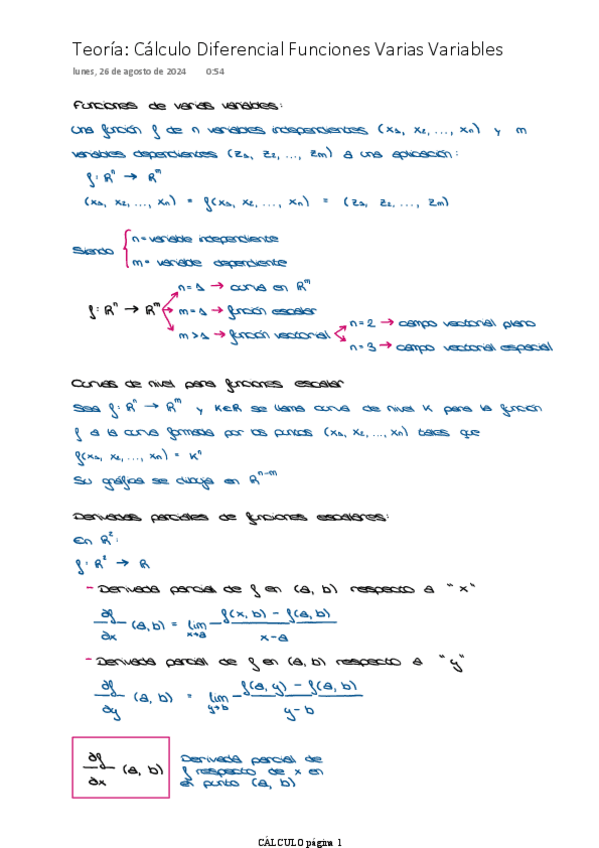 Teoría: Cálculo Diferencial Funciones Varias Variables
lunes, 26 de agosto de 2024 0:54
Funciones de varias variables:
Una función f de n variables independientes (x₁, x₂, ..., xn) y m
variables dependientes (z₁, z₂, ..., zm) a una aplicación:
f: Rⁿ → Rᵐ
(x₁, x₂, ..., xn) = f(x₁, x₂, ..., xn) = (z₁, z₂, ..., zm)
Siendo { n = variable independiente
m = variable dependiente
n = 1 → curva en Rᵐ
f: Rⁿ → Rᵐ m = 1 → función escalar
m > 1 → función vectorial
n = 2 → campo vectorial plano
n = 3 → campo vectorial espacial
Curvas de nivel para funciones escalar
Sea f: Rⁿ → Rᵐ y K∈R se llama curva de nivel K para la función
f a la curva formada por los puntos (x₁, x₂, ..., xn) tales que
f(x₁, x₂, ..., xn) = Kⁿ
Su gráfica se dibuja en Rⁿ⁻ᵐ
Derivadas parciales de funciones escalares:
En R²:
f: R² → R
- Derivada parcial de f en (a, b) respecto a "x"
∂f/∂x (a, b) = lim x→a f(x, b) - f(a, b) / x - a
- Derivada parcial de f en (a, b) respecto a "y"
∂f/∂y (a, b) = lim y→b f(a, y) - f(a, b) / y - b
∂f/∂x (a, b)
Derivada parcial de
f respecto de x en
el punto (a, b)
CÁLCULO página 1